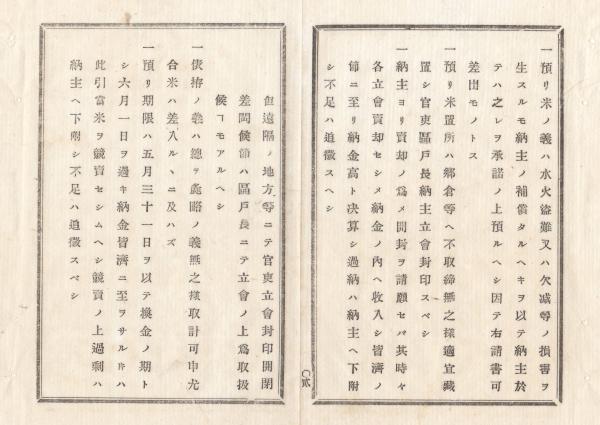 一預リ米ノ義ハ水火盗難又ハ欠減等ノ損害ヲ
生スルモ納主ノ補償タルヘキヲ以テ納主於
テハ之レヲ承諾ノ上預ルヘシ因テ右請書可
差出モノトス
一預リ米置所ハ郷倉等ヘ不取締無之樣適宜藏
置シ官吏區戸長納主立會封印スベシ
一納主ヨリ賣却ノ爲メ開封ヲ請願セバ其時々
各立會賣却セシメ納金ノ內ヘ收入シ皆濟ノ
節ニ至リ納金高ト決算シ過納ハ納主ヘ下附
シ不足ハ追徵スヘシ
但遠隔ノ地方等ニテ官吏立會封印開閉
差閊候節ハ區戸長ニテ立會ノ上爲取扱
候ヿモアルヘシ
一俵拵ノ義ハ總テ麁略ノ義無之樣取計可申尤
合米ハ差入ルヽニ及ハズ
一預リ期限ハ五月三十一日ヲ以テ換金ノ期ト
シ六月一日ヲ過キ納金皆濟ニ至ヲサルトキハ
此引當米ヲ競賣セシムヘシ競賣ノ上過剰ハ
納主ヘ下附シ不足ハ追徵スベシ